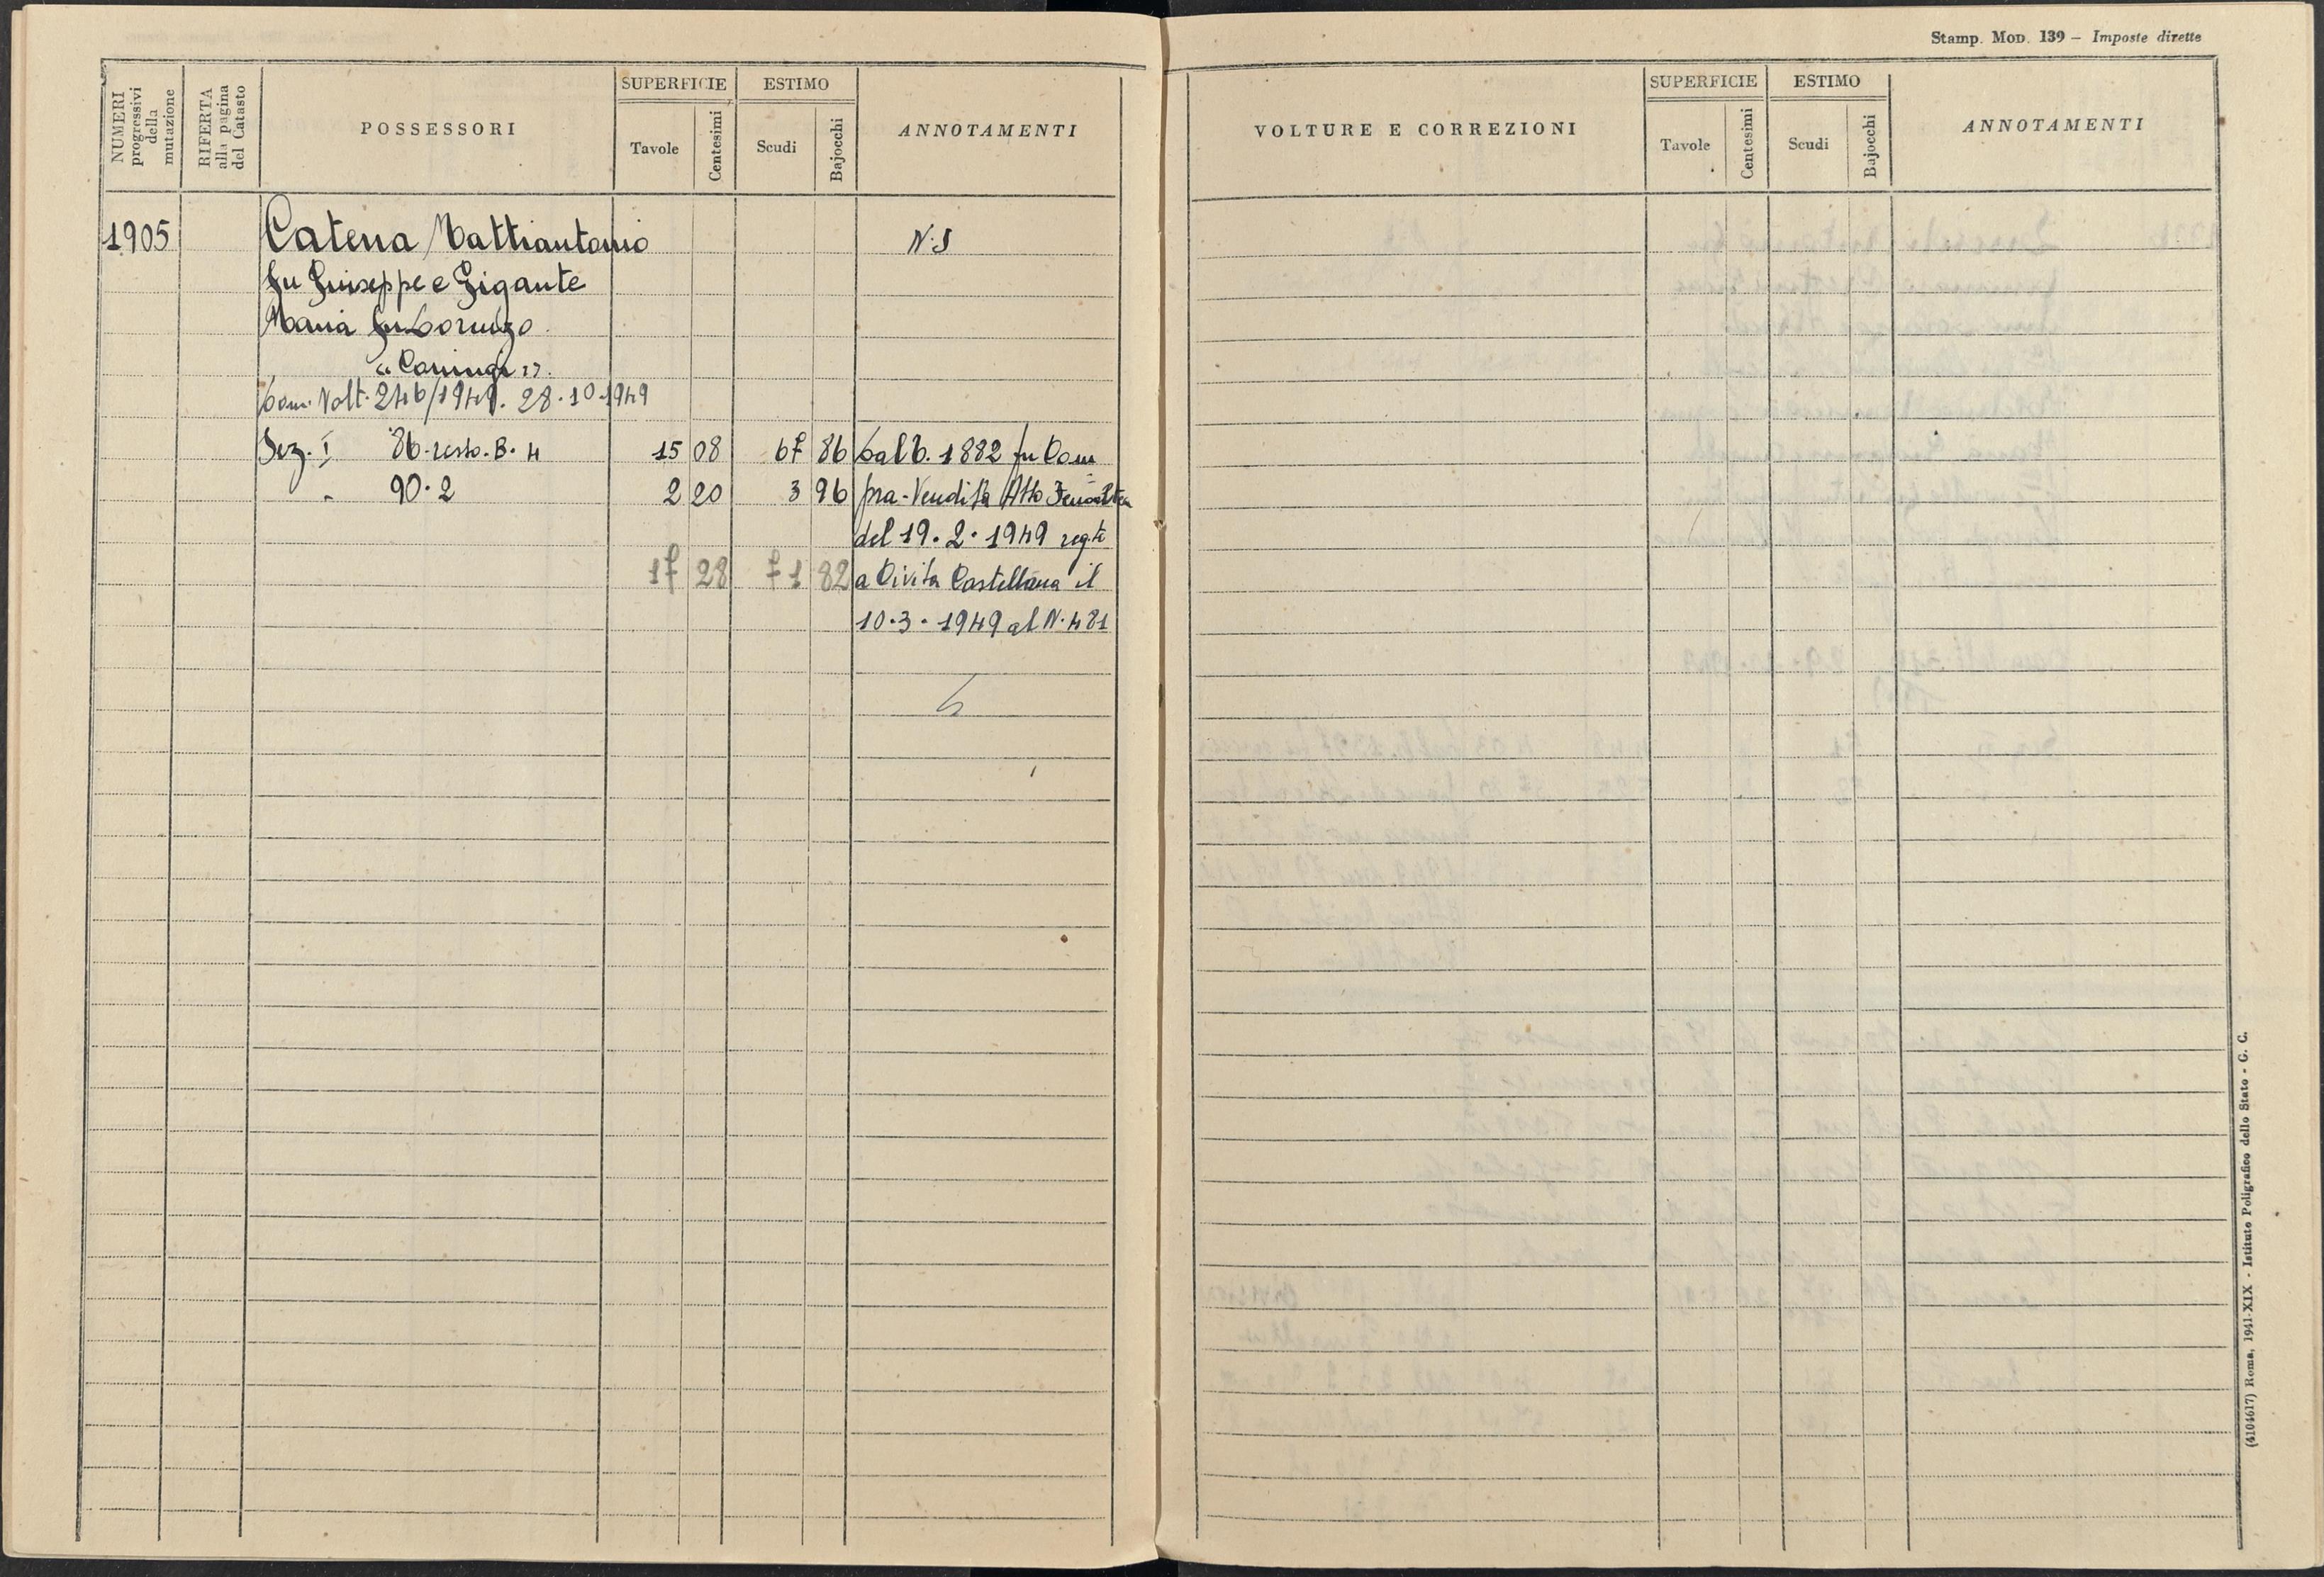 Stamp. Mod. 139 – Imposte dirette
NUMERI progressivi della mutazione
RIFERTA alla pagina del Catasto
POSSESSORI
SUPERFICIE
Tavole
Centesimi
ESTIMO
Scudi
Bajocchi
ANNOTAMENTI
VOLTURE E CORREZIONI
SUPERFICIE
Tavole
Centesimi
ESTIMO
Scudi
Bajocchi
ANNOTAMENTI
1905 Catena Mattiantonio N.S
fu Giuseppe e Gigante
Maria fu Lorenzo
Volt. 246/1949. 28.10.1949
Sez. I 86.resto.B.4 15 08 67 86 Dal b. 1882 fu Com
" 90.2 2 20 3 96 pra-Vendita Atto
del 19.2.1949 regte
17 28 71 82 a Civita Castellana il
10.3.1949 al N.481
(4104617) Roma, 1941-XIX - Istituto Poligrafico dello Stato - G. C.